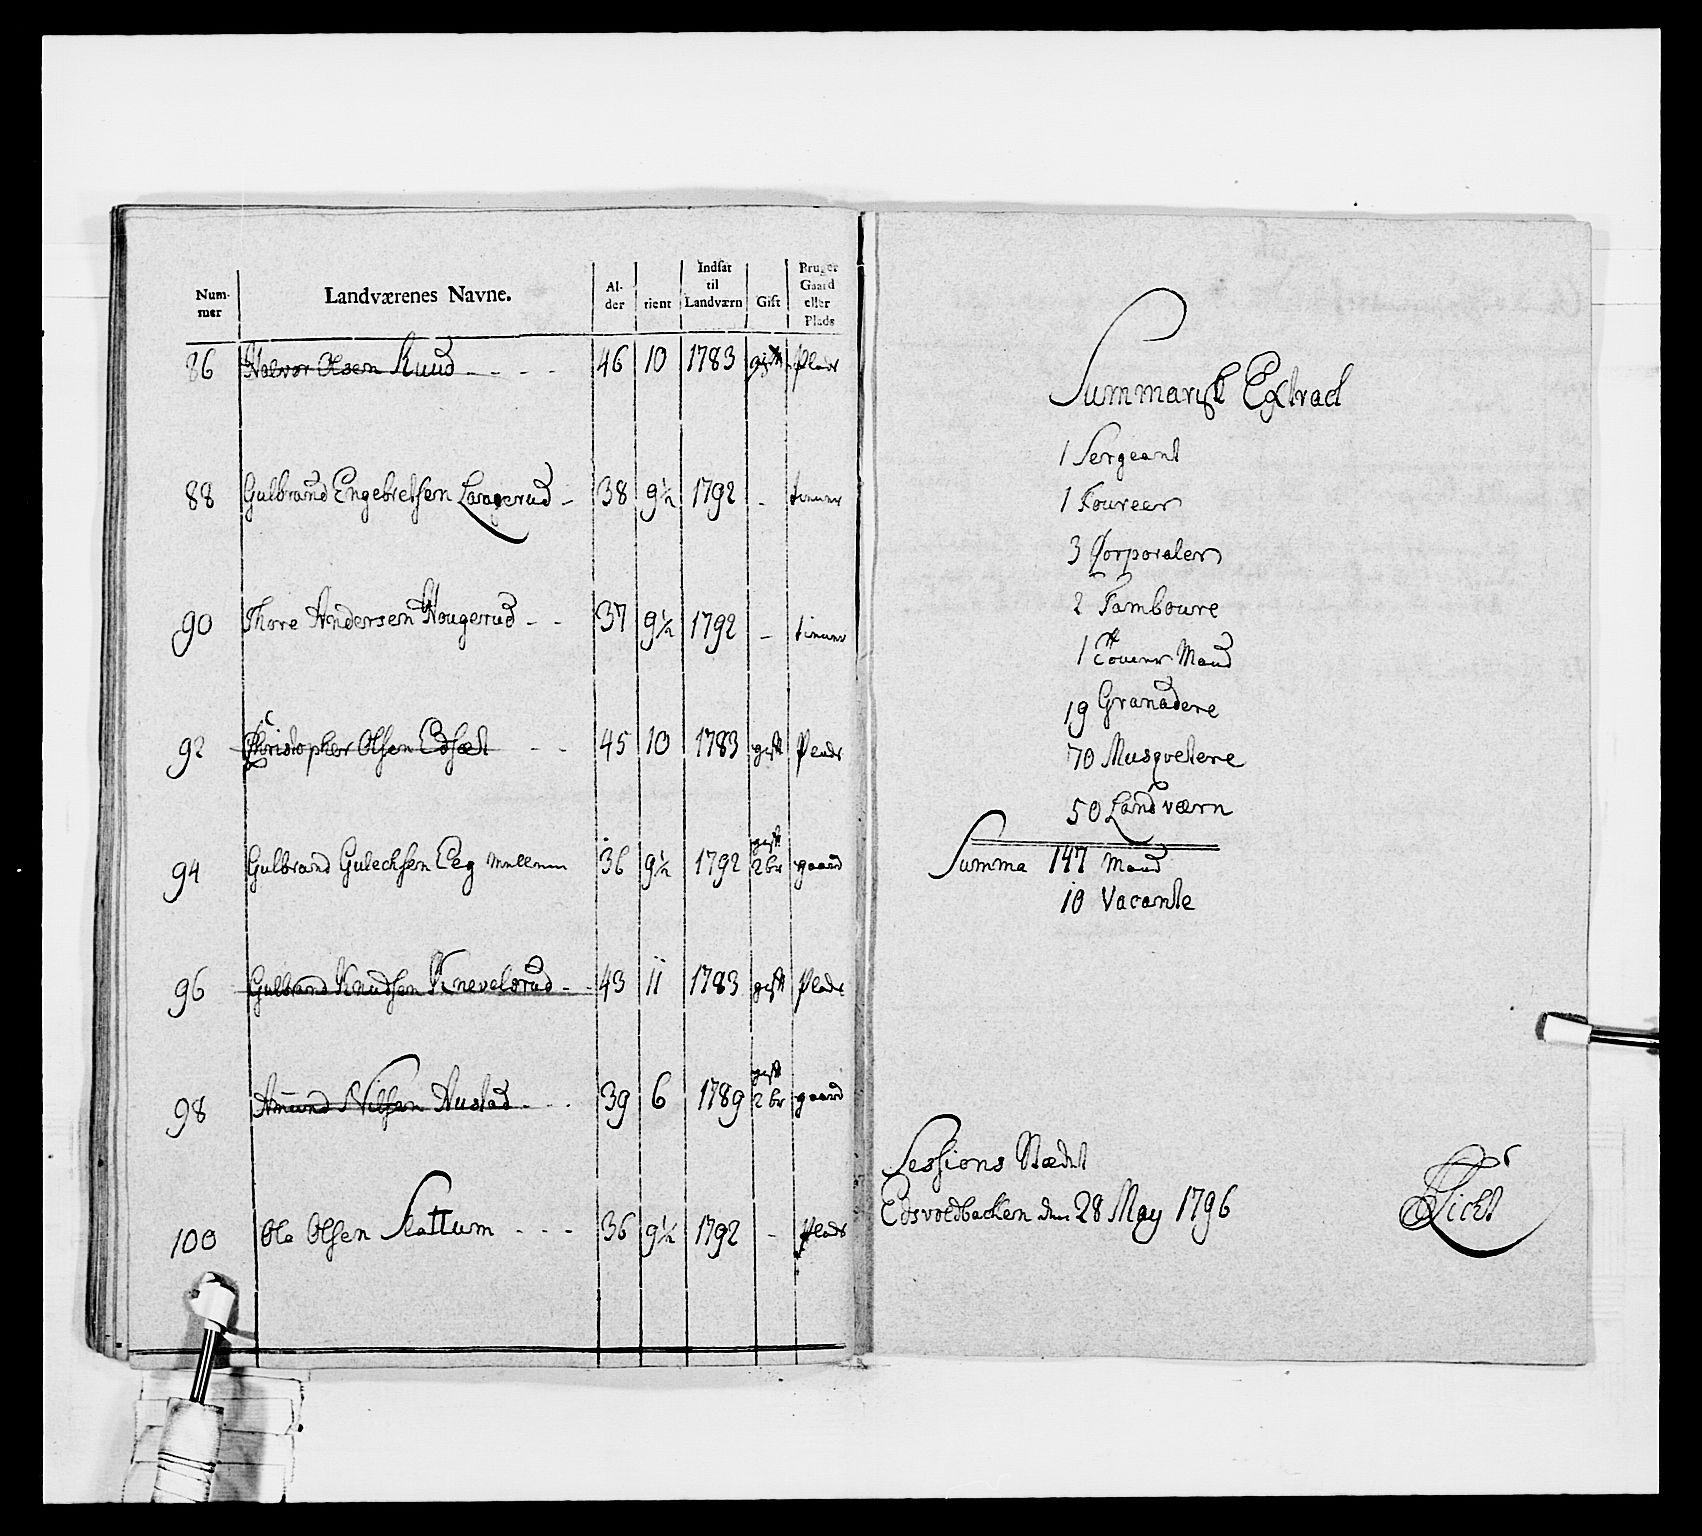 Num-
mer
Landværenes Navne.
Al-
der
tient
Indsat
til
Landværn
Gift
Bruger
Gaard
eller
Plads
86 Halvor Olsen Ruud - - - - 46 10 1783 gift Plads
88 Gulbrand Engebretsen Langerud - 38 9½ 1792 - tiener
90 Thore Andersen Hougerud - - 37 9½ 1792 - tiener
92 Christopher Olsen Edsæt - - 45 10 1783 gift Plads
94 Gulbrand Gulechsen Eeg 36 9½ 1792 gift 2br gaard
96 Gulbrand Knudsen Knevelsrud - - 43 11 1783 gift Plads
98 Amund Nilsen Austad - - 39 6 1789 gift 2br gaard
100 Ole Olsen Skattum - - - 36 9½ 1792 - Plads
Summarisk Extract
1 Sergeant
1 Foureer
3 Corporaler
2 Tamboure
1 Mand
19 Granadere
70 Musqvetere
50 Landværn
Summa 147 Mand
10 Vacante
Sessions Stædet
Edsvoldbacken den 28 May 1796